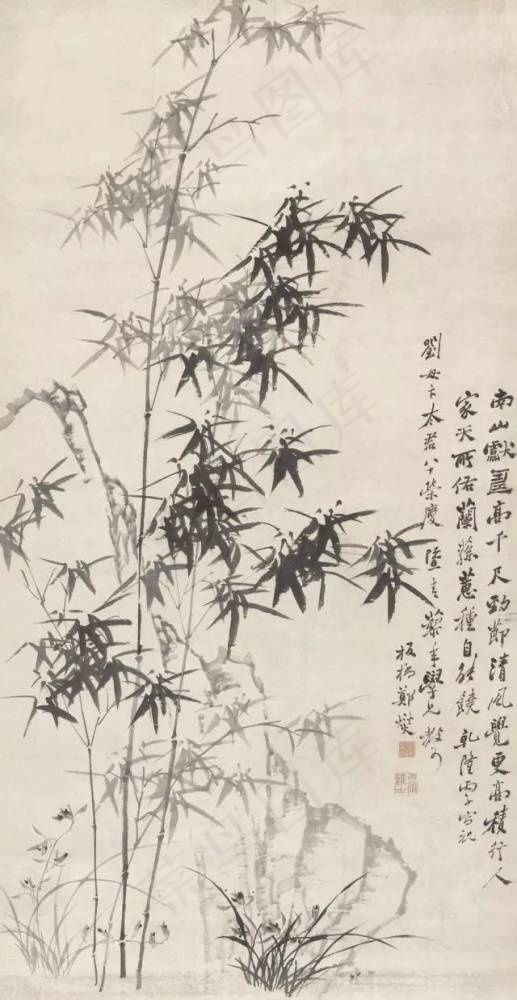 南山獻壽高千尺勁節清風覺更高積行人
家天所佑蘭蓀蕙種自能饒 乾隆丙子寫祝
劉母卞太君八十榮慶 藜年學兄教可
板橋鄭燮
菜鸟图库